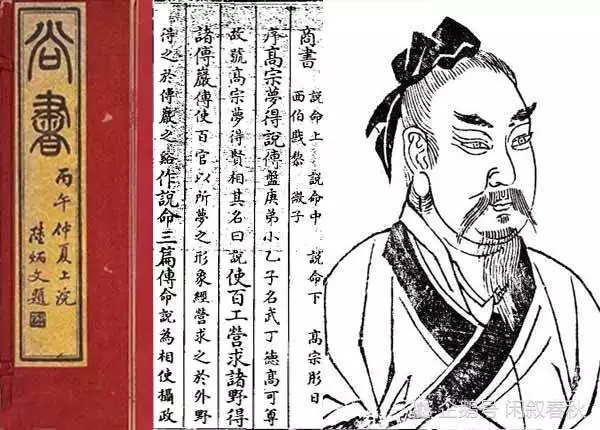 尚書
丙午仲夏上浣
陸炳文題
商書
說命上 說命中 說命下 高宗肜日
西伯戡黎 微子
序高宗夢得說傳盤庚弟小乙子名武丁德高可尊
故號高宗夢得賢相其名曰說使百工營求諸野得
諸傅巖傳使百官以所夢之形象經營求之於外野
得之於傅巖之谿作說命三篇傳命說為相使攝政
企鹅号 闲叙春秋